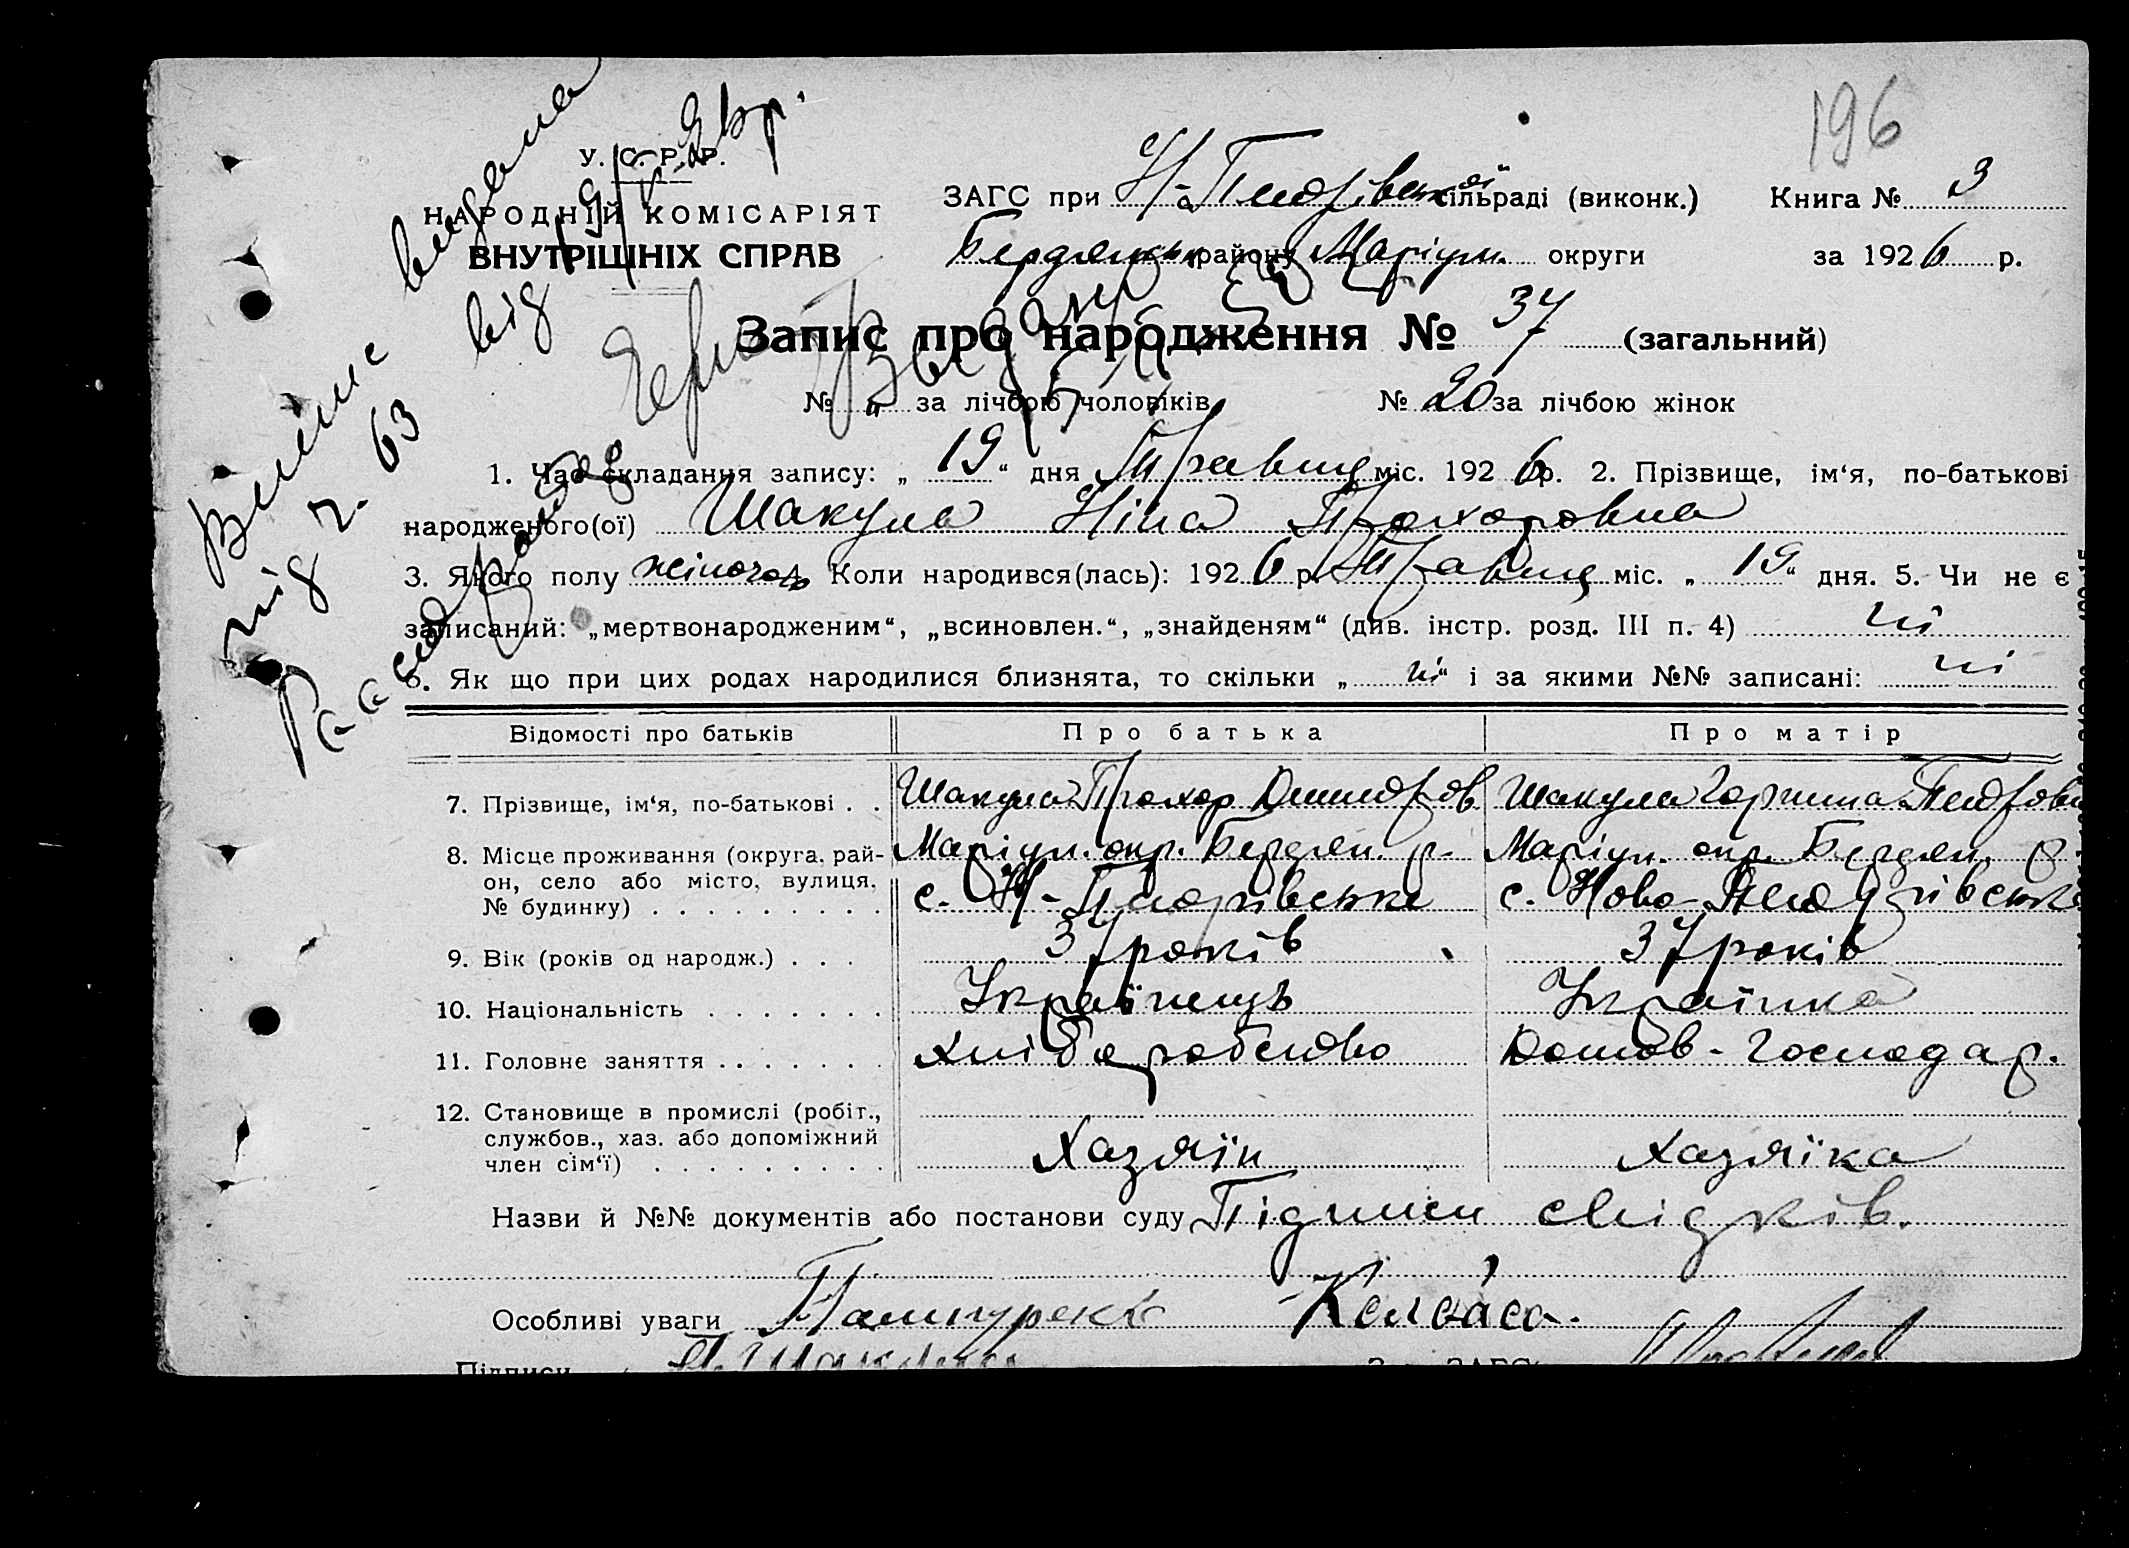 196
У. С. Р. Р.
НАРОДНІЙ КОМІСАРІЯТ
ВНУТРІШНІХ СПРАВ
ЗАГС при Н-Петрівській сільраді (виконк.) Книга № 3
Бердянськ району Маріуп. округи за 1926 р.
Запис про народження № 37 (загальний)
№ „ за лічбою чоловіків № 20 за лічбою жінок
1. Час складання запису: „ 19 “ дня Травня міс. 1926 р. 2. Прізвище, ім‘я, по-батькові
народженого(ої) Шакула Ніна Прохоровна
3. Якого полу жіночого 4. Коли народився(лась): 1926 р. Травня міс. „ 19 “ дня. 5. Чи не є
записаний: „мертвонародженим“, „всиновлен.“, „знайденям“ (див. інстр. розд. III п. 4) ні
6. Як що при цих родах народилися близнята, то скільки „ ні “ і за якими №№ записані: ні
Відомості про батьків Про батька Про матір
7. Прізвище, ім‘я, по-батькові . . Шакула Прохор Дмитров. Шакула Горпина Петровн
8. Місце проживання (округа, рай- Маріуп. окр. Бердян. р. Маріуп. окр. Бердян. р
он, село або місто, вулиця, с. Н-Петрівське с. Ново-Петрівське
№ будинку) . . . . . . . . .
9. Вік (років од народж.) . . . 37 років 37 років
10. Національність . . . . . . . Українець Українка
11. Головне заняття . . . . . . . Хліборобство Домов-господар.
12. Становище в промислі (робіт.,
службов., хаз. або допоміжний
член сім‘ї) . . . . . . . . . Хазяїн Хазяїка
Назви й №№ документів або постанови суду Підписи свідків.
Особливі уваги
Підписи Шакула Зав. ЗАГС
Виписе видана
під ч. 63 від